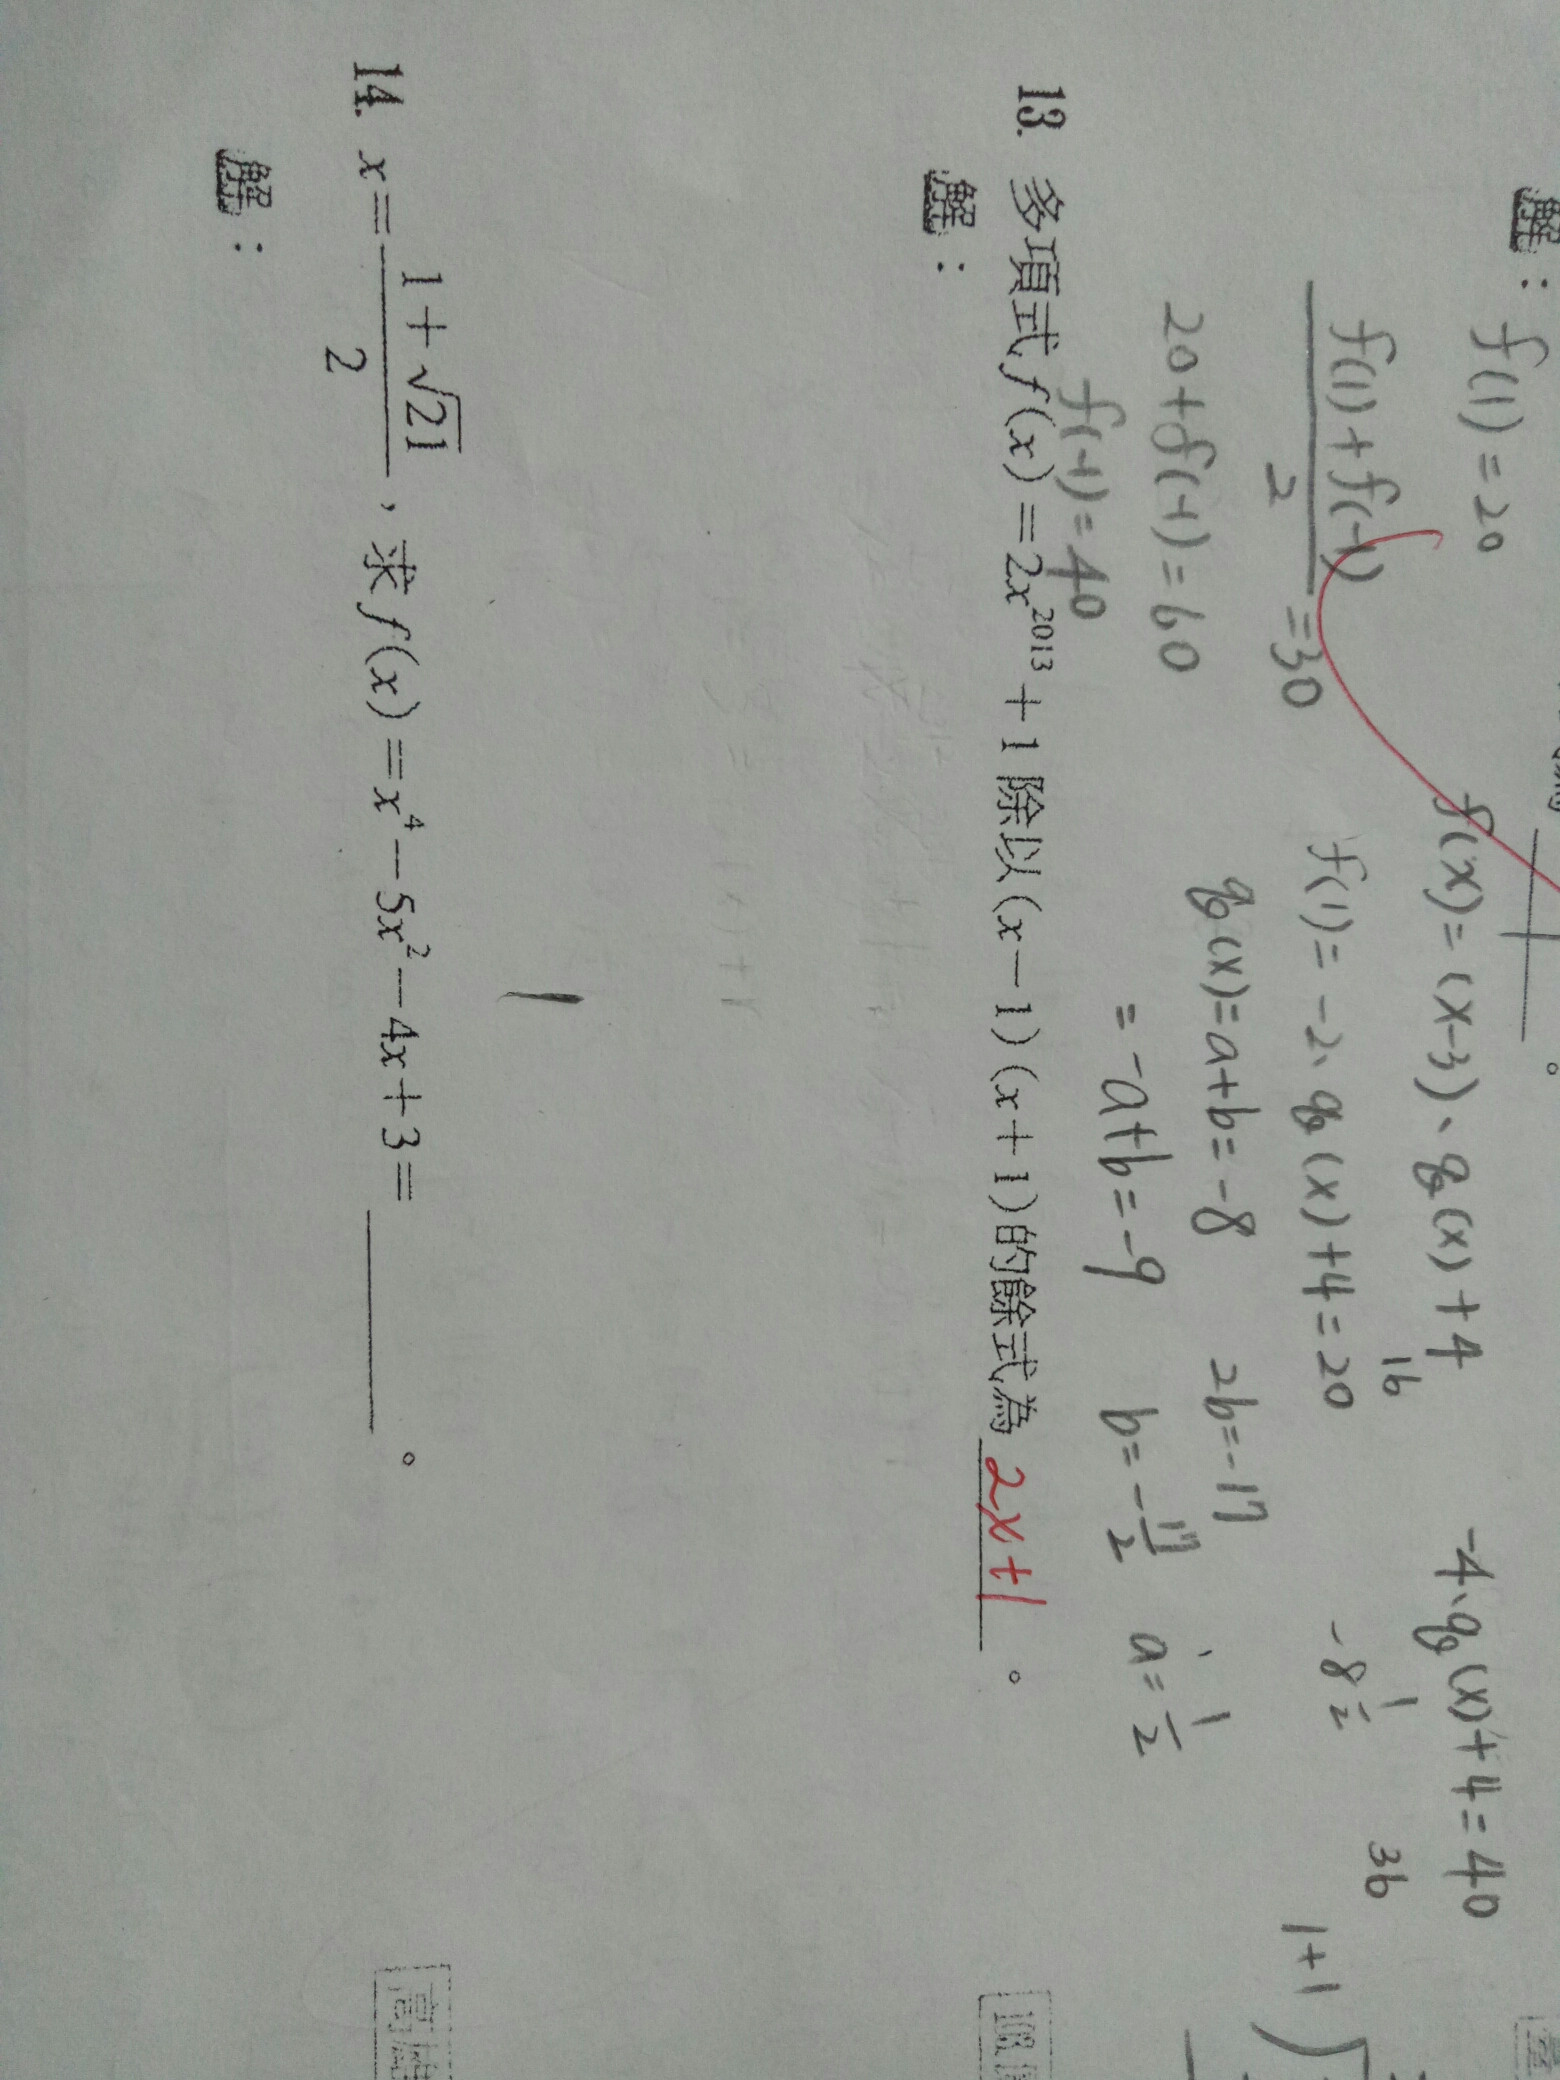 解：f(1)=20
f(x)=(x-3)、q(x)+4
-4、q(x)+4=40
16
36
f(1)+f(-1)/2=30
f(1)=-2、q(x)+4=20
-8 1/2
1+1
20+f(-1)=60
q(x)=a+b=-8
2b=-17
f(-1)=40
=-a+b=-9
b=-17/2
a=1/2
13. 多項式f(x)=2x²⁰¹³+1除以(x-1)(x+1)的餘式為2x+1。
解：
14. x=(1+√21)/2，求f(x)=x⁴-5x²-4x+3=______。
解：